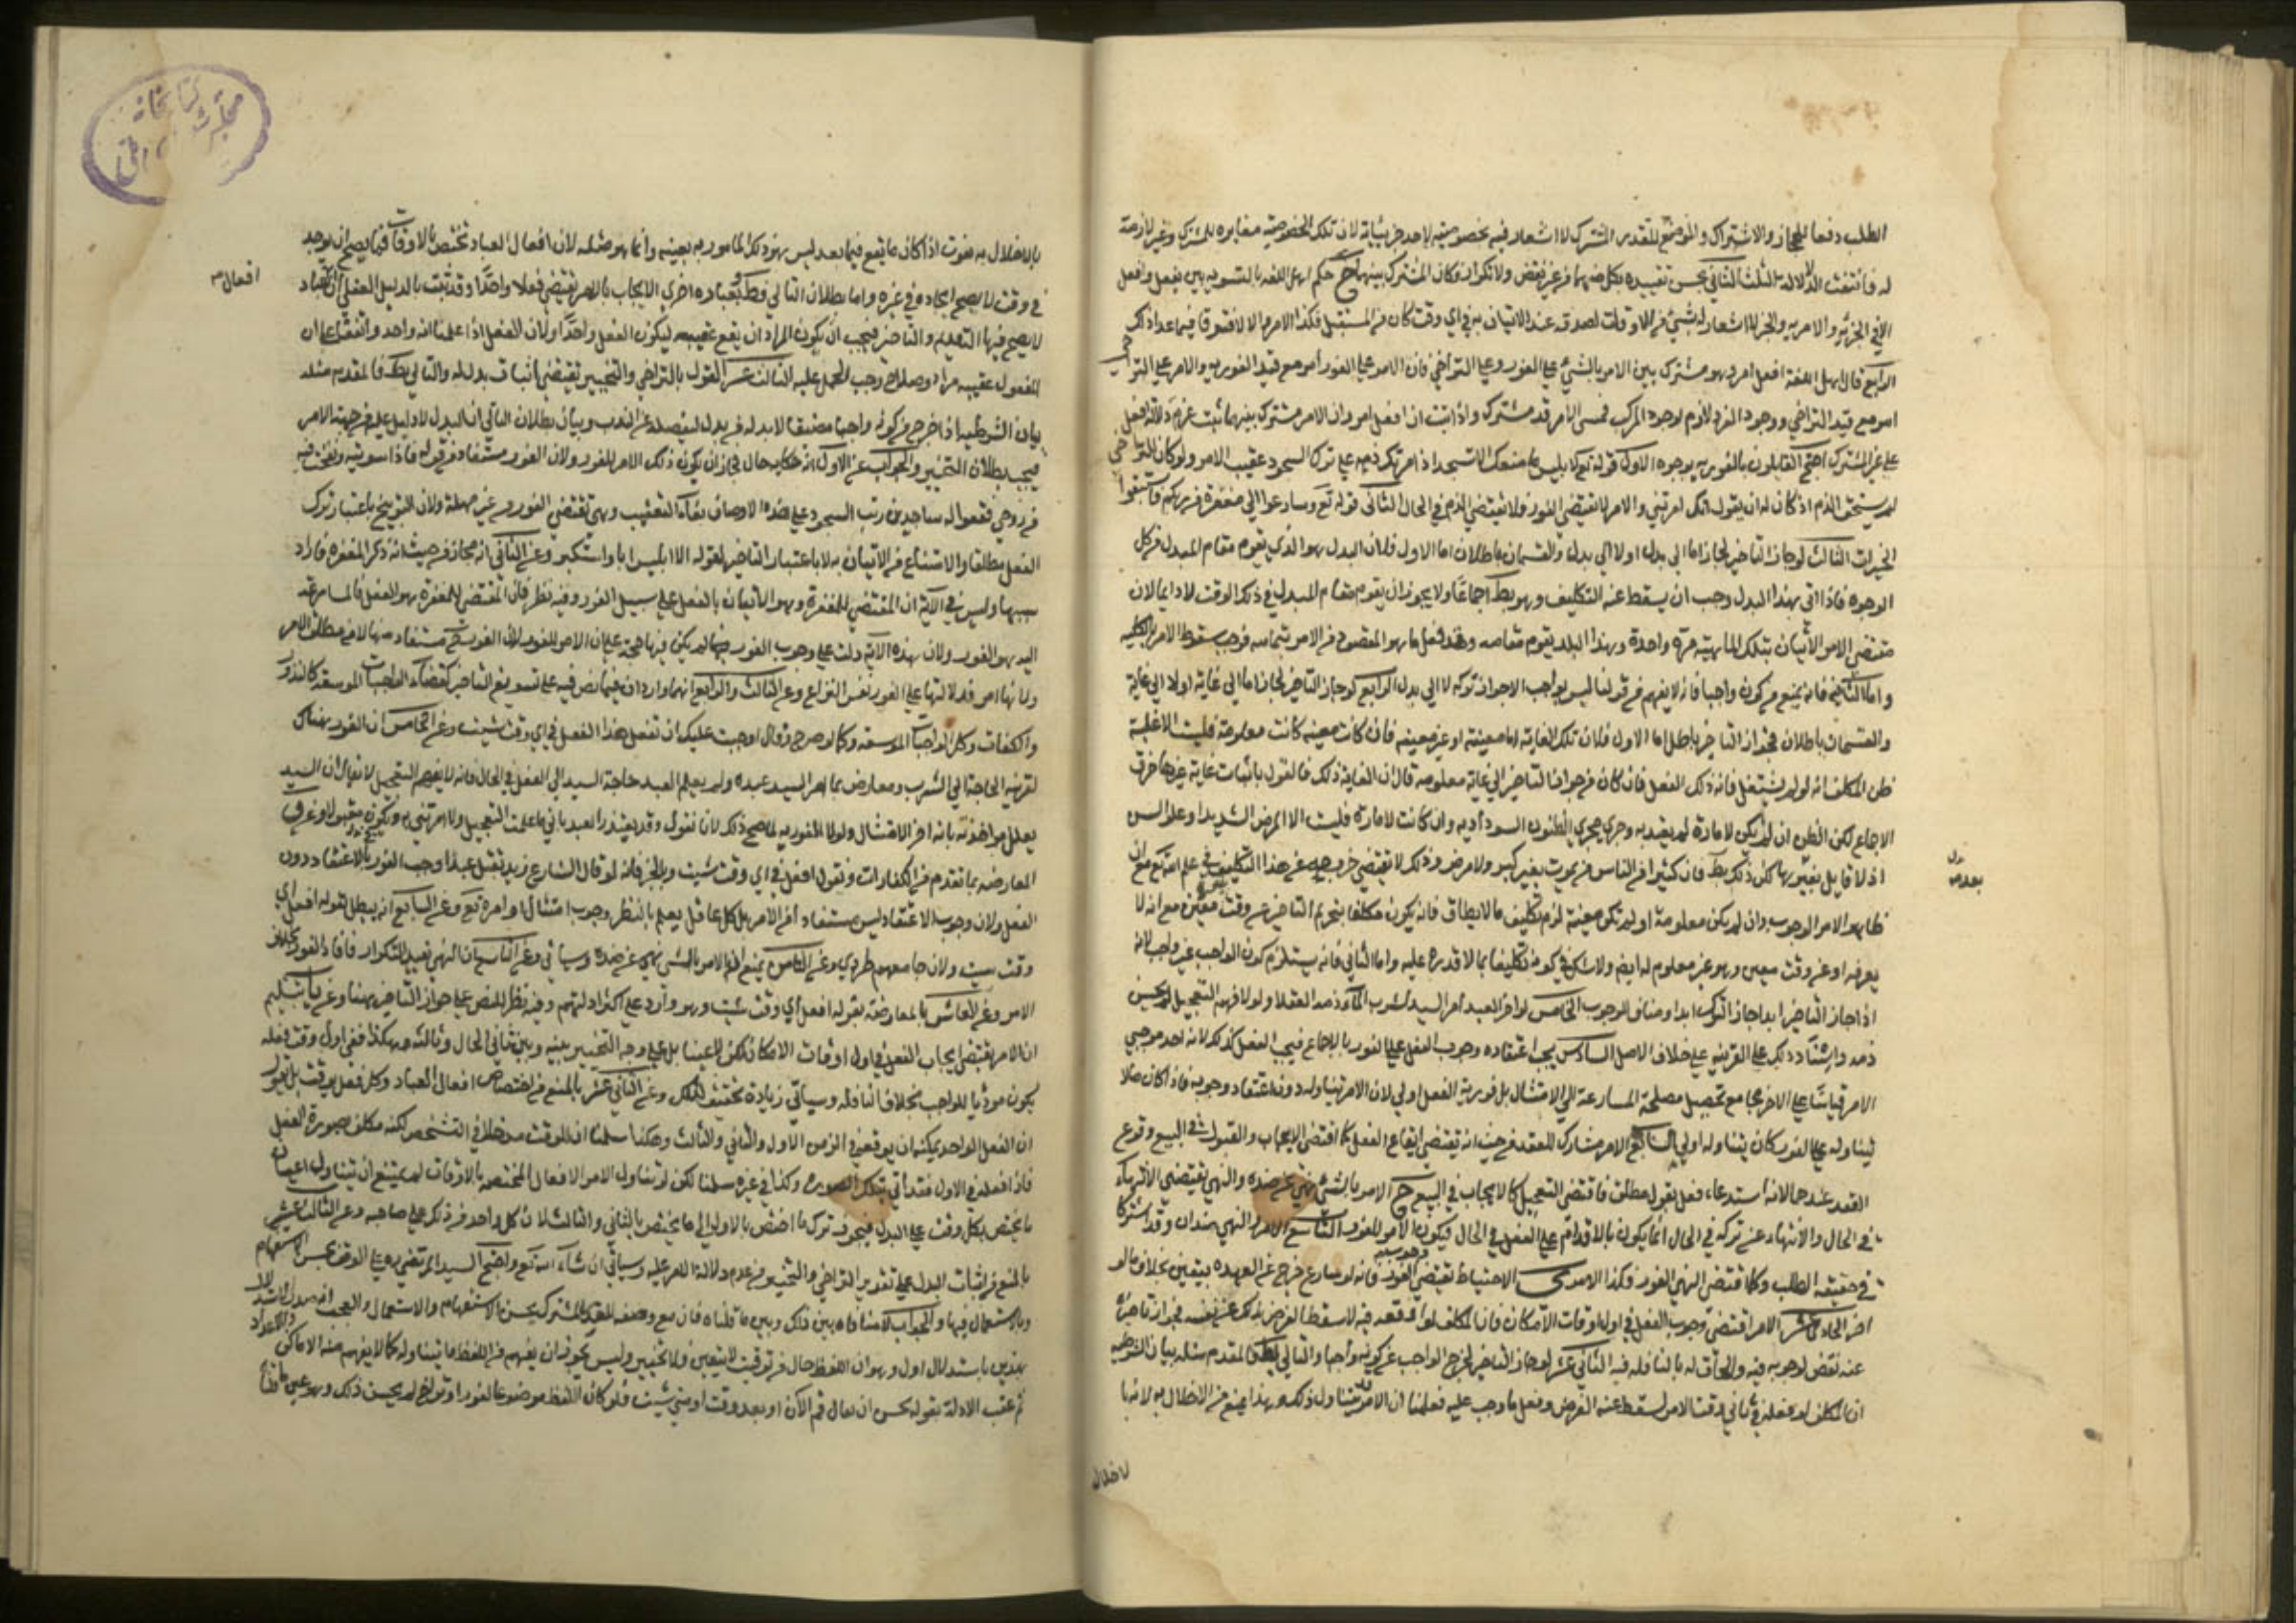 الطلب دفعا للمجاز والاشتراك والموضوع للقدر المشترك لا اشعار فيه بخصوصية احد جزئياته لان تلك الخصوصية مغايرة للمشترك وغير لازمة
له فانتفت الدلالة الثلث الثاني يحسن تقييده بكل منهما من غير نقض ولا تكرار فكان المشترك بينهما حكم اهل اللغة بالتسوية بين يفعل وافعل
الا في الخبرية والامرية والخبر لا اشعار له بشيء من الاوقات لصدقه عند الاتيان به في اي وقت كان من المستقبل فكذا الامر والا لافترقا فيما عدا ذلك
الرابع قال اهل اللغة افعل امر وهو مشترك بين الامر بالشيء على الفور وعلى التراخي فان الامر على الفور امر مع قيد الفورية والامر على التراخي
امر مع قيد التراخي ووجود الفرد لازم لوجود المركب فمسمى الامر قدر مشترك واذا ثبت ان افعل امر وان الامر مشترك بينهما ثبت عدم دلالة افعل
على غير المشترك احتج القائلون بالفورية بوجوه الاول قوله تع لابليس ما منعك الا تسجد اذ امرتك ذمه على ترك السجود عقيب الامر ولو كان للتراخي
لم يستحق الذم اذ كان له ان يقول انك امرتني والامر لا يقتضي الفور فلا يقتضي الذم في الحال الثاني قوله تع وسارعوا الى مغفرة من ربكم فاستبقوا
الخيرات الثالث لو جاز التاخير لجاز اما الى بدل او لا الى بدل والقسمان باطلان اما الاول فلان البدل هو الذي يقوم مقام المبدل من كل
الوجوه فاذا اتى بهذا البدل وجب ان يسقط عنه التكليف وهو بط اجماعا ولا يجوز ان يقوم مقام المبدل في ذلك الوقت لا دائما لان
مقتضى الامر الاتيان بتلك الماهية مرة واحدة وهذا البدل يقوم مقامه وقد فعل ما هو المقصود من الامر بتمامه فوجب سقوط الامر بالكلية
واما الثاني فلانه يمنع من كونه واجبا فانه لا يفهم من قولنا ليس بواجب الا جواز تركه لا الى بدل الرابع لو جاز التاخير لجاز اما الى غاية او لا الى غاية
والقسمان باطلان فجواز التاخير باطل اما الاول فلان تلك الغاية اما معينة او غير معينة فان كانت معينة كانت معلومة فليست الا غلبة
ظن المكلف انه لو لم يشتغل فاته ذلك الفعل فان كان من جوز التاخير الى غاية معلومة قال ان الغاية ذلك فالقول باثبات غاية غيرها خرق
الاجماع لكن الظن ان لم يكن لامارة لم يعتد به وجرى مجرى الظنون السوداوية وان كانت لامارة فليست الا المرض الشديد او علو السن
اذ لا قايل بغيرهما لكن ذلك بط فان كثيرا من الناس من يموت بغير كبر ولا مرض وذلك لا يقتضي خروجه عن هذا التكليف في علم الله تع مع ان
ظاهر الامر الوجوب وان لم يكن معلومة او لم تكن معينة لزم تكليف ما لا يطاق فانه يكون مكلفا بتحريم التاخير عن وقت معين مع انه لا
يعرفه او عن وقت معين وهو غير معلوم له ايضا ولا شك في كونه تكليفا بما لا قدرة عليه واما الثاني فانه يستلزم كون الواجب غير واجب لانه
اذا جاز التاخير ابدا جاز الترك ابدا ومناف للوجوب الخامس لو اخر العبد امر السيد بشرب الماء ذمه العقلا ولو لا فهم التعجيل لم يحسن
ذمه واستناد ذلك على القرينة على خلاف الاصل السادس يجب اعتقاده وجوب الفعل على الفور بالاجماع فيجب الفعل كذلك لانه احد موجبي
الامر قياسا على الاخر بجامع تحصيل مصلحة المسارعة الى الامتثال بل فورية الفعل اولى لان الامر يتناوله دون اعتقاد وجوبه فاذا كان ما لا
يتناوله على الفور كان يتناوله اولى السابع الامر مشارك للعقد من حيث انه يقتضي ايقاع الفعل كما اقتضى الايجاب والقبول في البيع وقوع
العقد عندهما لانه استدعاء فعل بقول مطلق فاقتضى التعجيل كالايجاب في البيع ح الامر بالشيء نهي عن ضده والنهي يقتضي الانتهاء
في الحال والانتهاء عن تركه في الحال انما يكون بالاقدام على الفعل في الحال فيكون الامر للفور التاسع الامر والنهي ضدان وقد اشتركا
في حقيقة الطلب وكما اقتضى النهي الفور فكذا الامر ى الاحتياط يقتضي الفور فانه لو سارع خرج عن العهدة بيقين بخلاف ما لو
اخر الحادي عشر الامر اقتضى وجوب الفعل في اول اوقات الامكان فان المكلف لو اوقعه فيه لاسقط الفرض بذلك عن نفسه فجواز تاخيره
عنه نقض لوجوبه فيه والحاق له بالنافلة فيه الثاني عشر لو جاز التاخير لخرج الواجب عن كونه واجبا والتالي بط فالمقدم مثله بيان الشرطية
ان المكلف لو فعله في ثاني وقت الامر لسقط عنه الفرض وفعل ما وجب عليه فعلمنا ان الامر يتناول ذلك وبهذا يمنع من الاخلال به لانه با
لاخلال
بالاخلال به مفوت اذ كان ما يقع فيما بعد ليس هو ذلك المامور به بعينه وانما هو مثله لان افعال العباد تختص بالاوقات فيما يصح ان يوجد
في وقت لا يصح ايجاده في غيره واما بطلان التالي فظ بعبارة اخرى الايجاب بالامر يقتضي فعلا واحدا وقد ثبت بالدليل العقلي ان العباد
افعال
لا يصح فيها التقديم والتاخير فيجب ان يكون المراد ان يقع عقيبه ليكون الفعل واحدا ولان الفعل اذا علمنا انه واحد واتفقنا على ان
المفعول عقيبه مراد وصلاح وجب الحمل عليه الثالث عشر القول بالتراخي والتخيير يقتضي اثبات بدل له والتالي بط فالمقدم مثله
بيان الشرطية اذا خرج من كونه واجبا مضيقا لا بد له من بدل ليفصله عن الندب وبيان بطلان الثاني ان البدل لا دليل عليه من جهة الامر
فيجب بطلان التخيير والجواب عن الاول انه حكاية حال فجاز ان يكون ذلك الامر للفور ولان الفور مستفاد من قوله فاذا سويته ونفخت فيه
من روحي فقعوا له ساجدين رتب السجود على هذه الاوصاف بفاء التعقيب وهي تقتضي الفور من غير مهلة ولان التوبيخ باعتبار ترك
الفعل مطلقا والامتناع من الاتيان به لا باعتبار التاخير لقوله الا ابليس ابى واستكبر وعن الثاني انه مجاز من حيث انه ذكر المغفرة فاراد
سببها وليس في الآية ان المقتضي للمغفرة وهو الاتيان بالفعل على سبيل الفور وفيه نظر فان المقتضي للمغفرة هو الفعل فالمسارعة
اليه هو الفور ولان هذه الآية دلت على وجوب الفور فيها لم يكن فيها حجة على ان الامر للفور لان الفور ح مستفاد منها لا من مطلق الامر
ولانها امر فدلالتها على الفور نفس النزاع وعن الثالث والرابع انهما واردان فيما نص فيه على تسويغ التاخير كقضاء الواجبات الموسعة كالنذور
والكفارات وكل الواجبات الموسعة وكما لو صرح وقال اوجبت عليك ان تفعل هذا الفعل في اي وقت شئت وعن الخامس ان الفور هناك
لقرينة الحاجة الى الشرب ومعارض بما امر السيد عبده ولم يعلم العبد حاجة السيد الى الفعل في الحال فانه لا يفهم التعجيل لا يقال ان السيد
يعلل مواخذته بانه اخر الامتثال ولولا الفورية لما صح ذلك لانا نقول وقد يعتذر العبد باني ما علمت التعجيل ولا امرتني به ويكون مقبولا وعن س
المعارضة بما تقدم من الكفارات وبقوله افعل في اي وقت شئت وبالخبر فانه لو قال الشارع زيد يقتل غدا وجب الفور بالاعتقاد دون
الفعل ولان وجوب الاعتقاد ليس مستفاد من الامر بل كل عاقل يعلم بالنظر وجوب امتثال اوامره تع وعن السابع انه يبطل بقوله افعل اي
وقت شئت ولان جامعهم طردي وعن الثامن يمنع ان الامر بالشيء نهي عن ضده وسياتي وعن التاسع ان النهي يفيد التكرار فافاد الفور بخلاف
الامر وعن العاشر بالمعارضة بقوله افعل اي وقت شئت وهو وارد على اكثر ادلتهم وفيه نظر للنص على جواز التاخير هنا وعن يا بتسليم
ان الامر يقتضي ايجاب الفعل في اول اوقات الامكان لكن لا عينا بل على وجه التخيير بينه وبين ثاني الحال وثالثه وهكذا ففي اي وقت فعله
يكون مؤديا للواجب بخلاف النافلة وسياتي زيادة تحقيق لذلك وعن الثاني عشر بالمنع من اختصاص افعال العباد وكل فعل بوقت بل نقول
ان الفعل الواحد يمكنه ان يوقعه في الزمن الاول والثاني والثالث وهكذا سلمنا ان للوقت مدخلا في التشخص لكنه مكلف بصورة الفعل
فاذا فعله في الاول فقد اتى بتلك الصورة وكذا في غيره سلمنا لكن لو تناول الامر الافعال المختصة بالاوقات لم يمتنع ان يتناول اعيان
ما يختص بكل وقت على البدل فيجوز ترك ما اختص بالاول الى ما يختص بالثاني والثالث لان كل واحد من ذلك على صاحبه وعن الثالث عشر
بالمنع من اثبات البدل على تقدير التراخي والتخيير من عدم دلالة الامر عليه وسياتي ان شاء الله تع واحتج السيد المرتضى ره على الوقف بحسن الاستفهام
وبالاستعمال فيها والجواب لا منافاة بين ذلك وبين ما قلناه فان مع وضعه للقدر المشترك يحسن الاستفهام والاستعمال والعجب انه ره
بهذين باستدلال اول وهو ان اللفظ خال من توقيت لا بتعيين ولا تخيير وليس يجوز ان يفهم من اللفظ ما يتناوله كما لا يفهم منه الاماكن
ثم عقب الادلة بقوله يحسن ان يقال قم الآن او بعد وقت او متى شئت فلو كان اللفظ موضوعا لفور او تراخ لم يحسن ذلك وهو عين ما قلناه